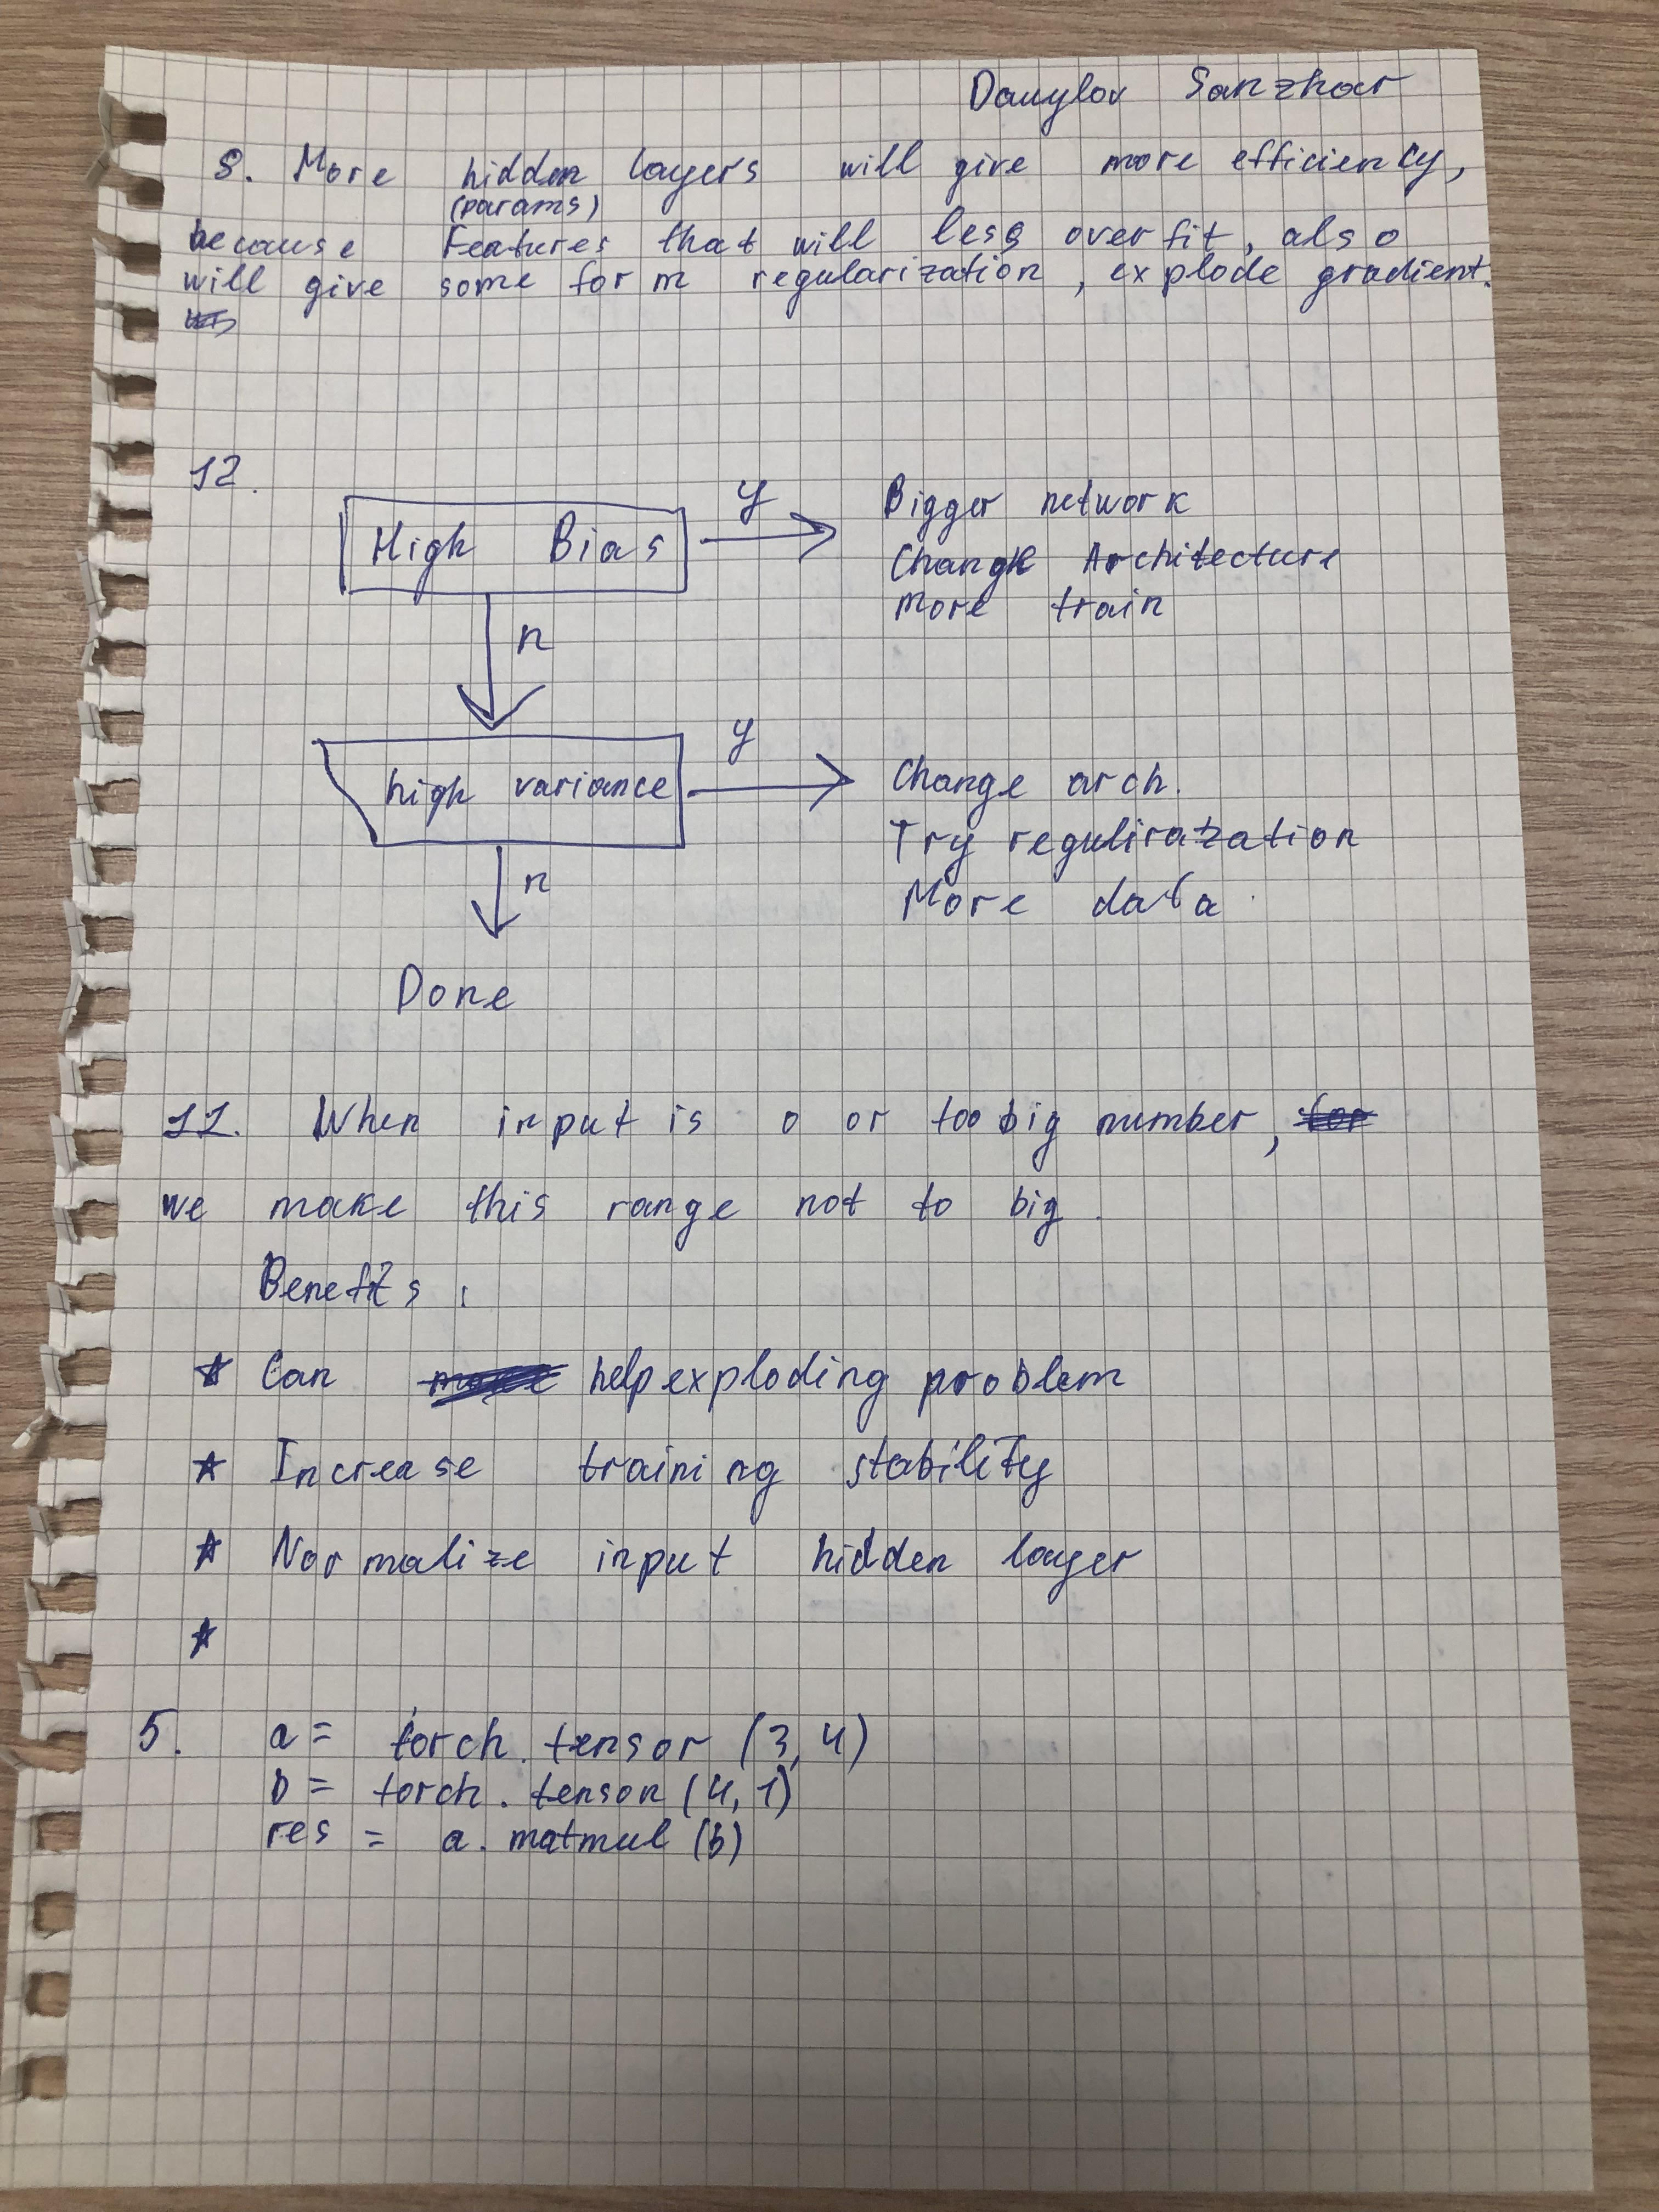 Danylov Sanzhar
8. More hidden layers will give more efficiency,
(params)
because Features that will less overfit, also
will give some form regularization, explode gradient.
12.
High Bias
y
Bigger network
Change Architecture
More train
n
high variance
y
Change arch.
Try reguliratzation
More data
n
Done
11. When input is 0 or too big number, for
we make this range not to big.
Benefits:
* Can make help exploding problem
* Increase training stability
* Normalize input hidden layer
*
5. a = torch.tensor (3,4)
b = torch.tensor (4,1)
res = a.matmul (b)